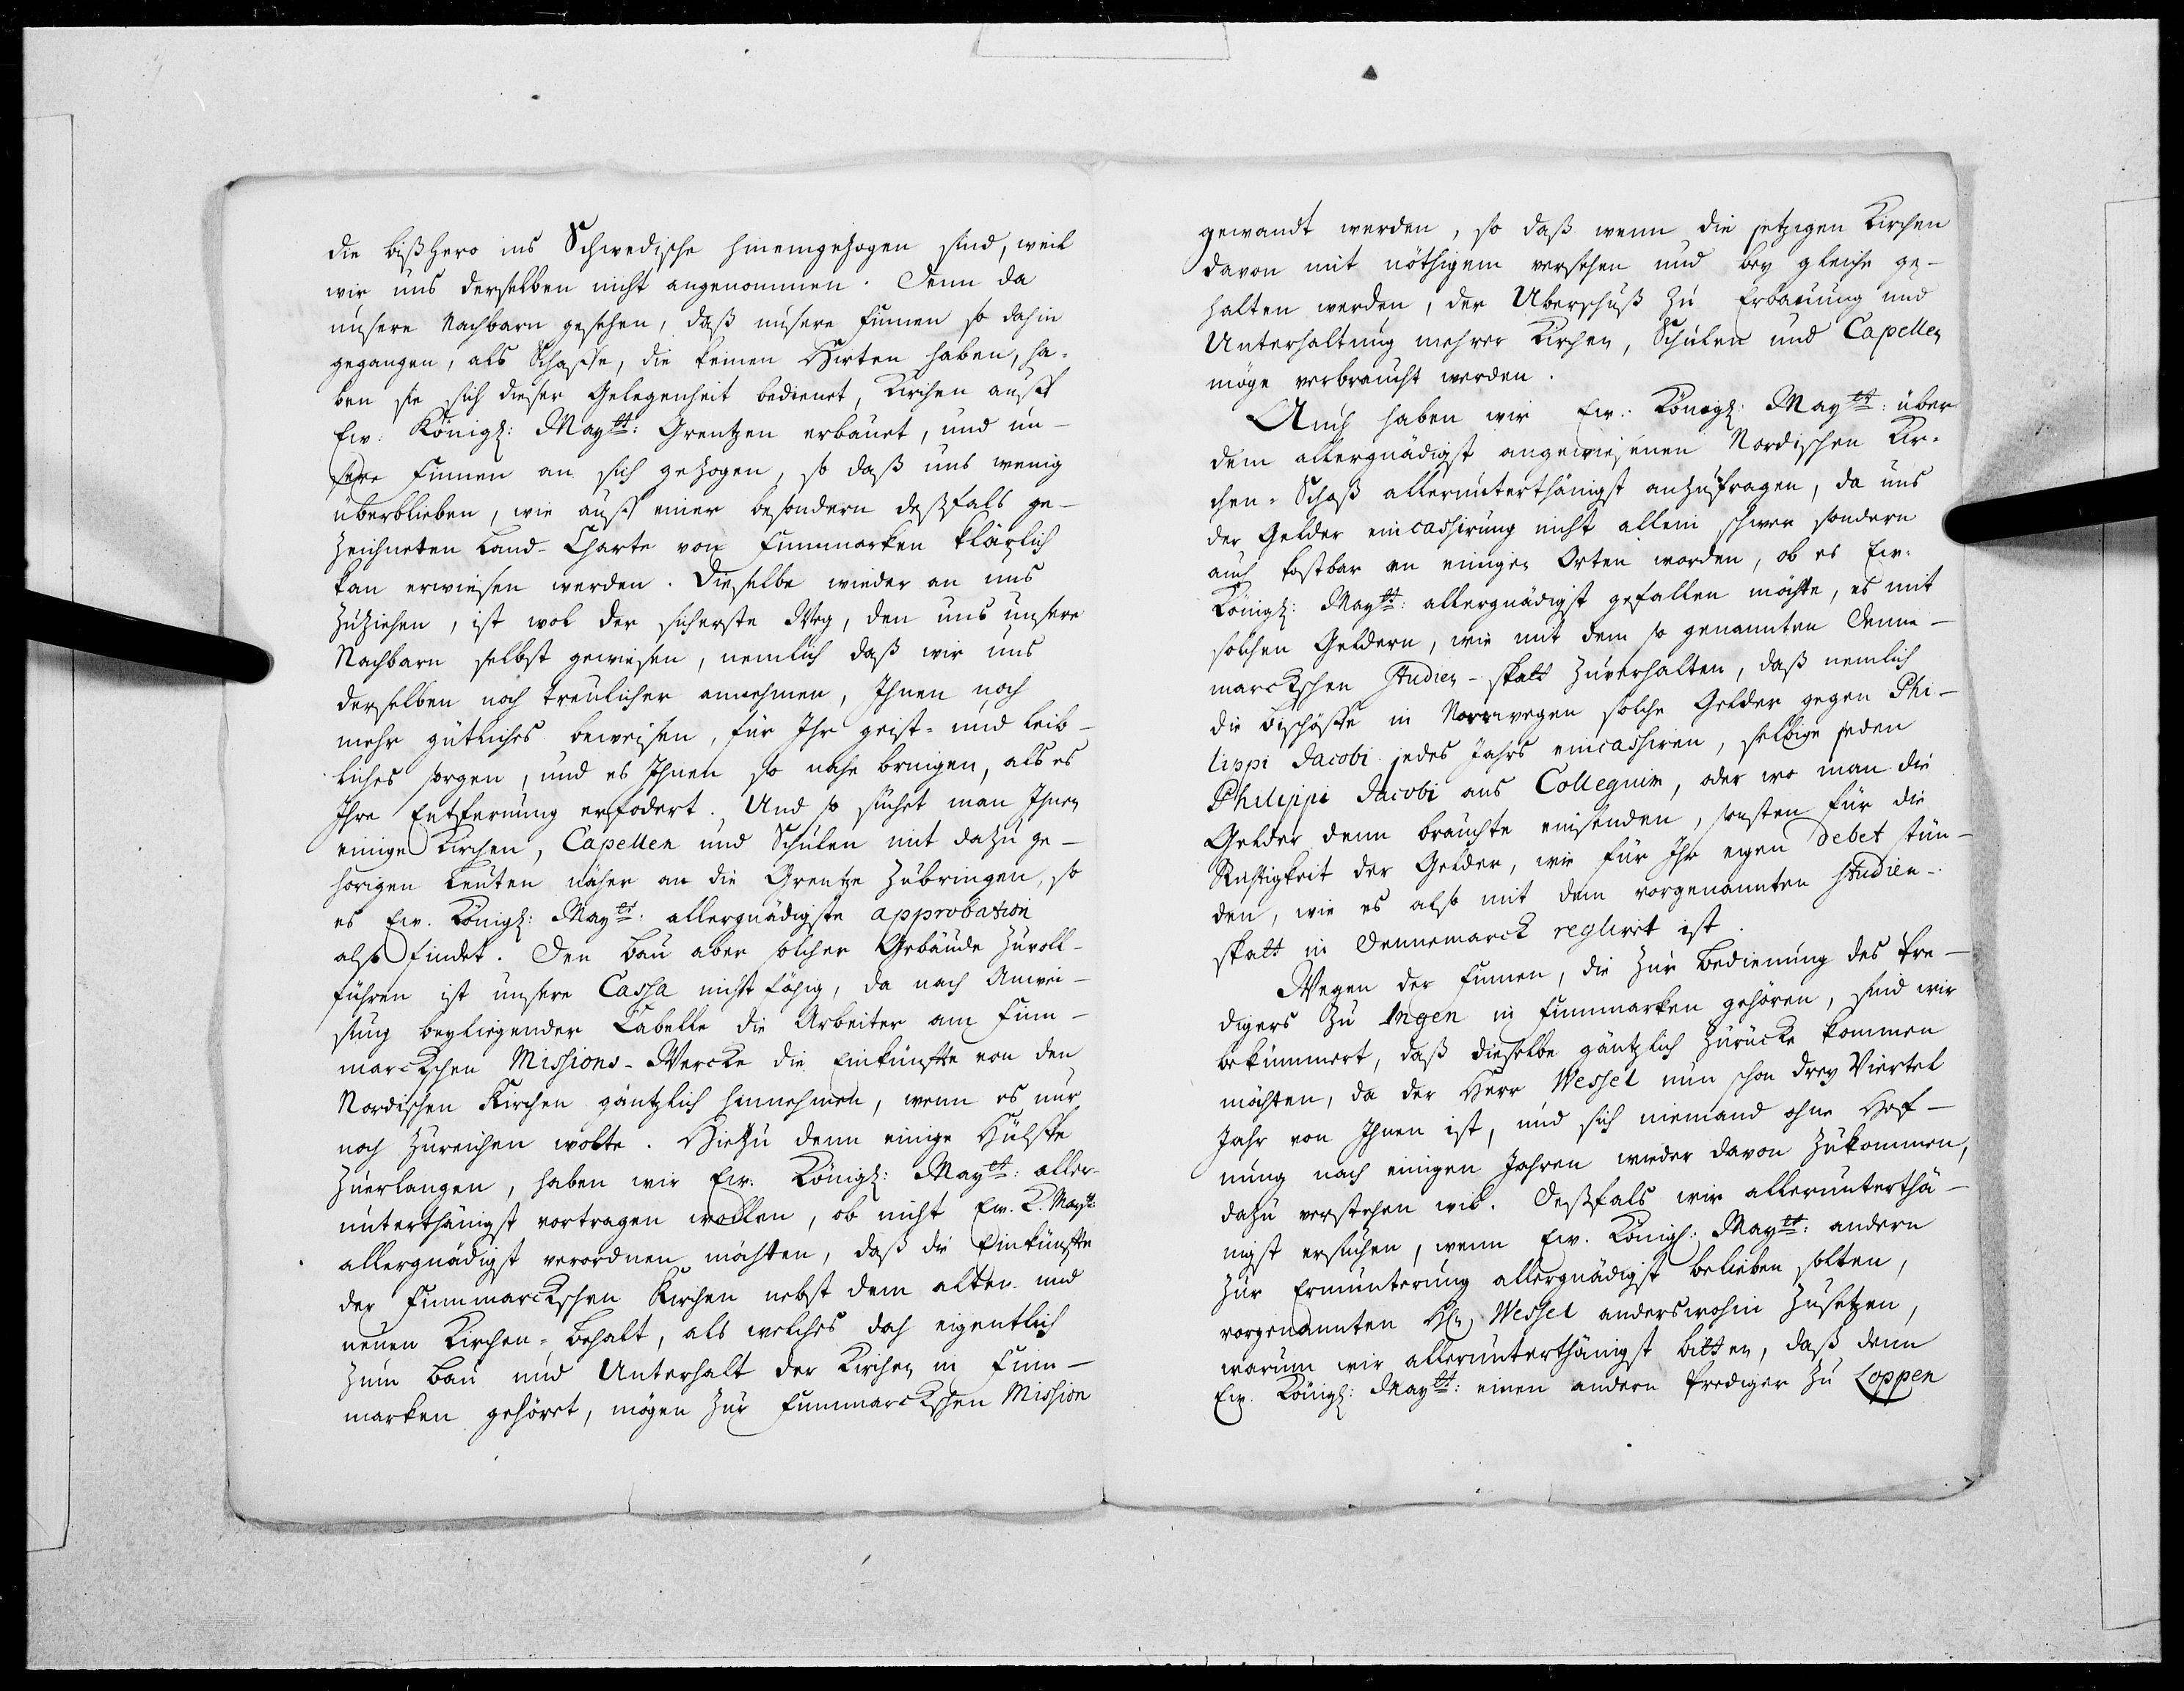 die bißhero ins Schwedische hineingezogen sind, weil
wir uns derselben nicht angenommen. Denn da
unsere Nachbarn gesehen, daß unsere Finnen so dahin
gegangen, als Schaffe, die keinen Hirten haben, ha-
ben sie sich dieser Gelegenheit bedienet, Kirchen auff
Ew: Königl: Maytt: Grentzen erbauet, und un-
sere Finnen an sich gezogen, so daß uns wenig
überblieben, wie auß einer besondern deßfals ge-
zeichneten Land-Charte von Finnmarken klärlich
kan erwiesen werden. Dieselbe wieder an uns
zuziehen, ist wol der sicherste Weg, den uns unsere
Nachbarn selbst gewiesen, nemlich daß wir uns
derselben noch treulicher annehmen, Ihnen noch
mehr gütliches beweisen, für Ihr geist- und leib-
liches sorgen, und es Ihnen so nahe bringen, als es
Ihre Entfernung erfodert. Und so suchet man Ihnen
einige Kirchen, Capellen und Schulen mit dazu ge-
hörigen Leuten näher an die Grentze zubringen, so
es Ew. Königl: Maytt: allergnädigste approbation
also findet. Den Bau aber solcher Gebäude zuvoll-
führen ist unsere Cassa nicht fähig, da nach Anwei-
sung beyliegender Tabelle die Arbeiter am Finn-
marckschen Missions-Wercke die Einkünfte von den
Nordischen Kirchen gäntzlich hinnehmen, wenn es nur
noch zureichen wolte. Hiezu denn einige Hülffe
zuerlangen, haben wir Ew. Königl: Maytt: aller-
unterthänigst vortragen wollen, ob nicht Ew. K. Maytt
allergnädigst verordnen möchten, daß die Einkünfte
der Finnmarckschen Kirchen nebst dem alten und
neuen Kirchen-Behalt, als welches doch eigentlich
zum Bau und Unterhalt der Kirchen in Finn-
marken gehöret, mögen zur Finnmarckschen Mission
gewandt werden, so daß wenn die jetzigen Kirchen
davon mit nöthigem versehen und bey gleiche ge-
halten werden, der Überschuß zu Erbauung und
Unterhaltung mehrer Kirchen, Schulen und Capellen
möge verbraucht werden.
Auch haben wir Ew: Königl: Maytt: über
dem allergnädigst angewiesenen Nordischen Kir-
chen-Schaß allerunterthänigst anzufragen, da uns
der Gelder eincassirung nicht allein schwer sondern
auch kostbar an einigen Orten worden, ob es Ew.
Königl: Maytt: allergnädigst gefallen möchte, es mit
solchen Geldern, wie mit dem so genannten Denne-
marckschen Studien-skatt zuverhalten, daß nemlich
die Bischöffe in Norrwegen solche Gelder gegen Phi-
lippi Jacobi jedes Jahrs eincassiren, selbige jeden
Philippi Jacobi ans Collegium, oder wo man die
Gelder denn brauchte einsenden, sonsten für die
Richtigkeit der Gelder, wie für Ihr eigen debet stün-
den, wie es also mit dem vorgenannten Studien-
skatt in Dennemarck regliret ist.
Wegen der Finnen, die zur Bedienung des Pre-
digers zu Ingen in Finnmarken gehören, sind wir
bekümmert, daß dieselbe gäntzlich zurücke kommen
möchten, da der Herr Wessel nun schon drey Viertel
Jahr von Ihnen ist, und sich niemand ohne Hof-
nung nach einigen Jahren wieder davon zukommen,
dazu verstehen wil. Deßfals wir allerunterthä-
nigst ersuchen, wenn Ew. Königl: Maytt: andern
zur Ermunterung allergnädigst belieben solten,
vorgenannten Hn Wessel anderswohin zusetzen,
warum wir allerunterthänigst bitten, daß denn
Ew. Königl: Maytt: einen andern Prediger zu Loppen